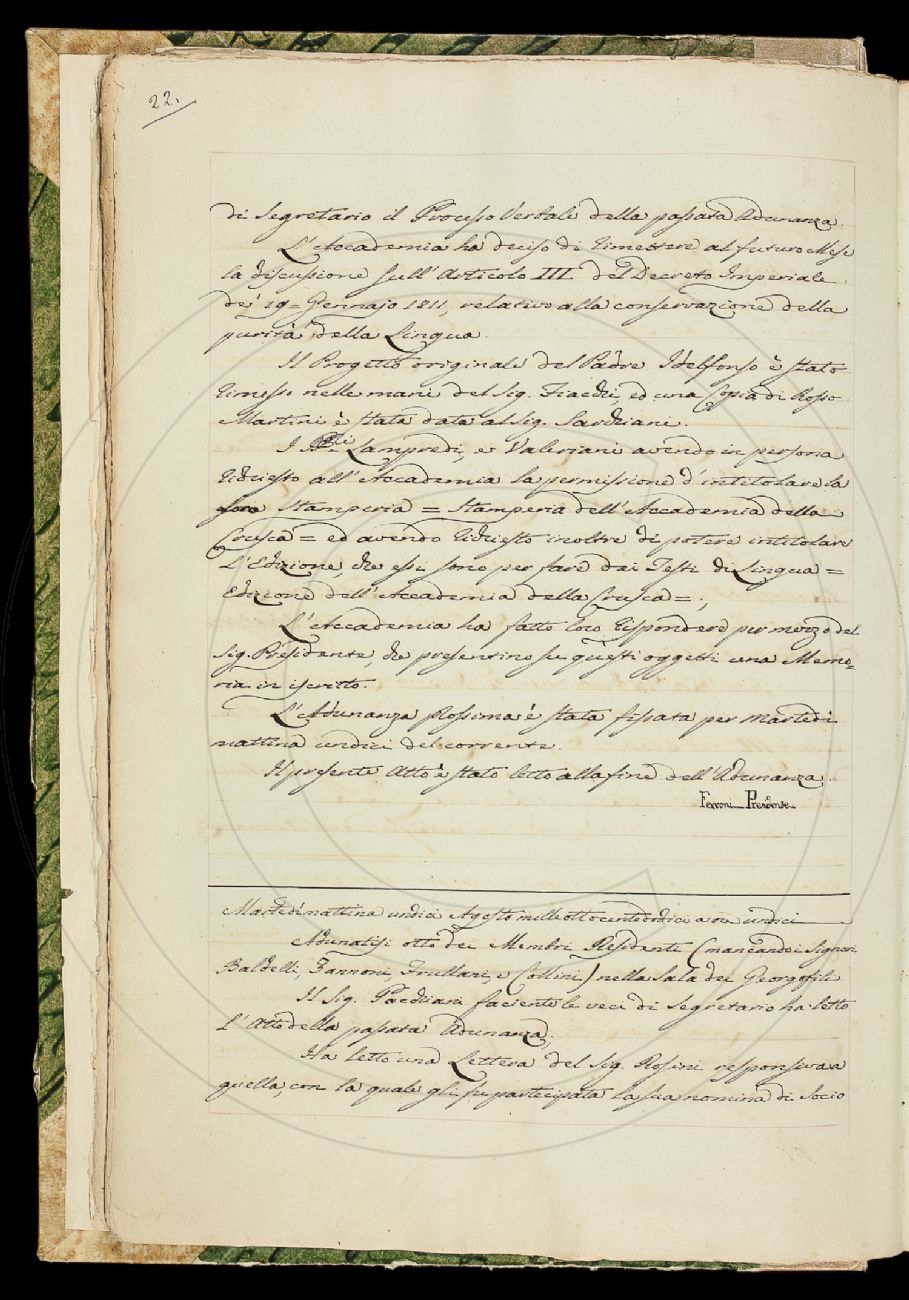 22.
di Segretario il Processo Verbale della passata Adunanza.
L'Accademia ha deciso di rimettere al futuro Mese
la discussione sull'Articolo III. del Decreto Imperiale
de' 19= Gennajo 1811, relativo alla conservazione della
purità della Lingua.
Il Progetto originale del Padre Idelfonso è stato
rimesso nelle mani del Sig. Fiacchi, ed una Copia di Rosso
Martini è stata data al Sig. Sarchiani.
I Lampredi, e Valeriani avendo in persona
richiesto all'Accademia la permissione d'intitolare la
loro Stamperia = Stamperia dell'Accademia della
Crusca = ed avendo richiesto inoltre di potere intitolare
L'Edizione, che essi sono per fare dei Testi di Lingua =
Edizione dell'Accademia della Crusca =;
L'Accademia ha fatto loro rispondere per mezzo del
Sig. Presidente, che presentino su questi oggetti una Memo=
ria in iscritto.
L'Adunanza Prossima è stata fissata per Martedì
mattina undici del corrente.
Il presente Atto è stato letto alla fine dell'Adunanza.
Ferroni Presidente
Martedì mattina undici Agosto mille ottocento dodici a ore undici
Adunatisi otto dei Membri Residenti (mancando i Signori
Baldelli, Zannoni, Frullani, e Collini) nella Sala dei Georgofili
Il Sig. faciente le veci di Segretario ha letto
l'Atto della passata Adunanza;
Ha letto una Lettera del Sig. Rosini responsiva a
quella, con la quale gli fu partecipata la sua nomina di Socio